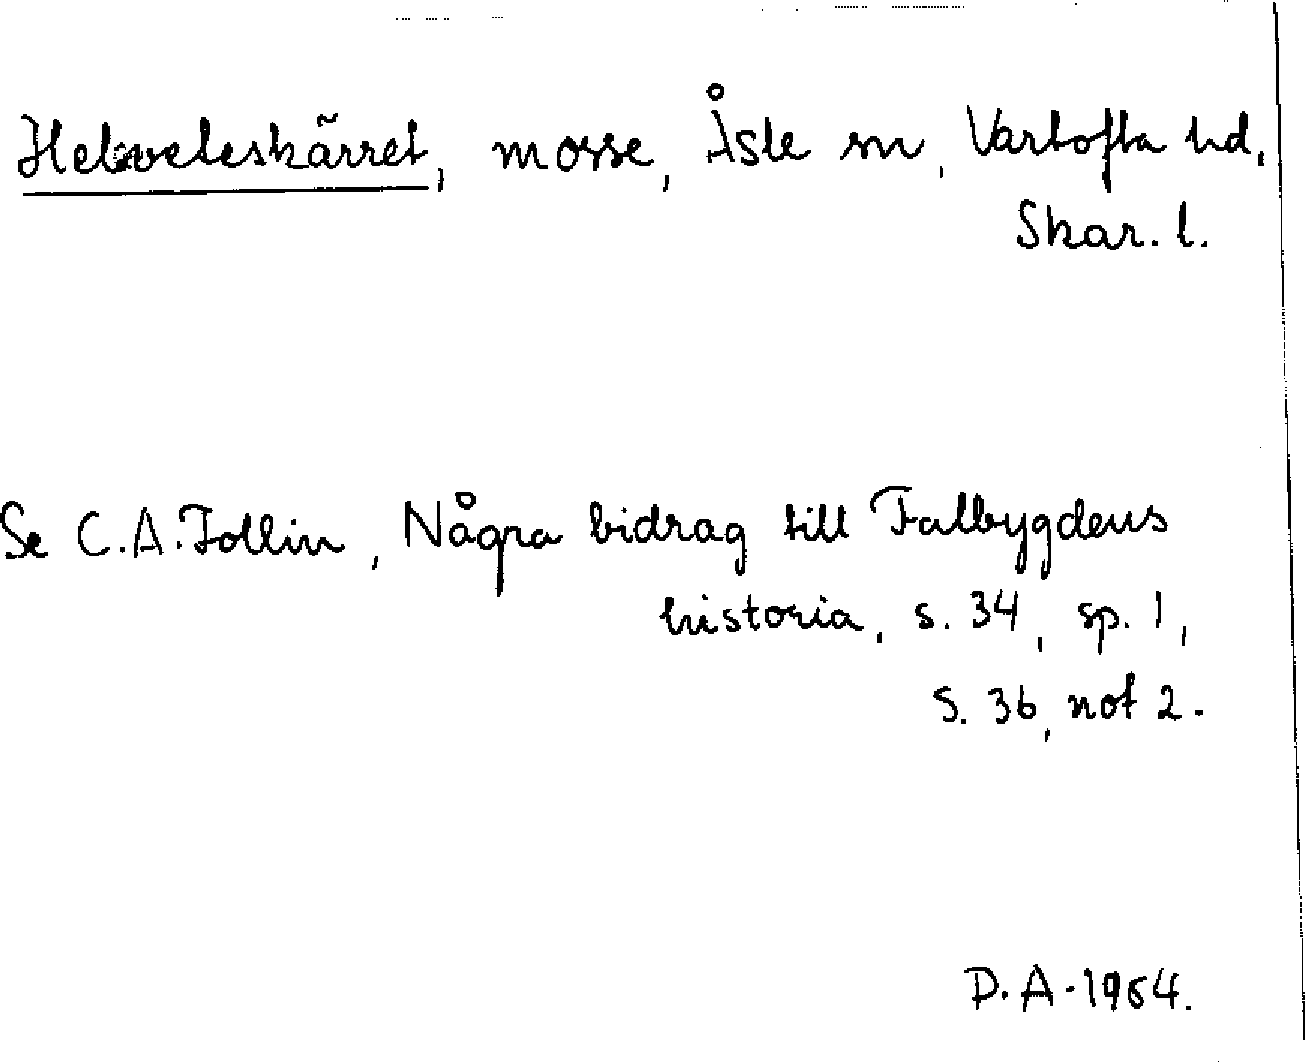 Helveteskärret, mosse, Åsle sn, Vartofta hd,
Skar. l.
Se C.A. Tollin, Några bidrag till Falbygdens
historia, s. 34, sp. 1,
s. 36, not 2.
D.A. 1964.